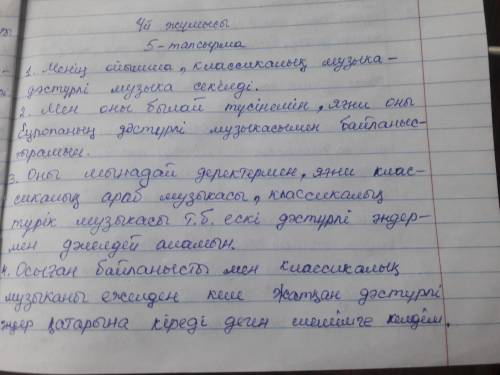 Үй жұмысы
5-тапсырма
1. Менің ойымша, классикалық музыка -
дәстүрлі музыка секілді.
2. Мен оны былай түсінемін, яғни оны
Еуропаның дәстүрлі музыкасымен байланыс-
тырамын.
3. Оны мынадай деректермен, яғни клас-
сикалық араб музыкасы, классикалық
түрік музыкасы т.б. ескі дәстүрлі әндер-
мен дәлелдей аламын.
4. Осыған байланысты мен классикалық
музыканы ежелден келе жатқан дәстүрлі
әндер қатарына кіреді деген шешімге келдім.